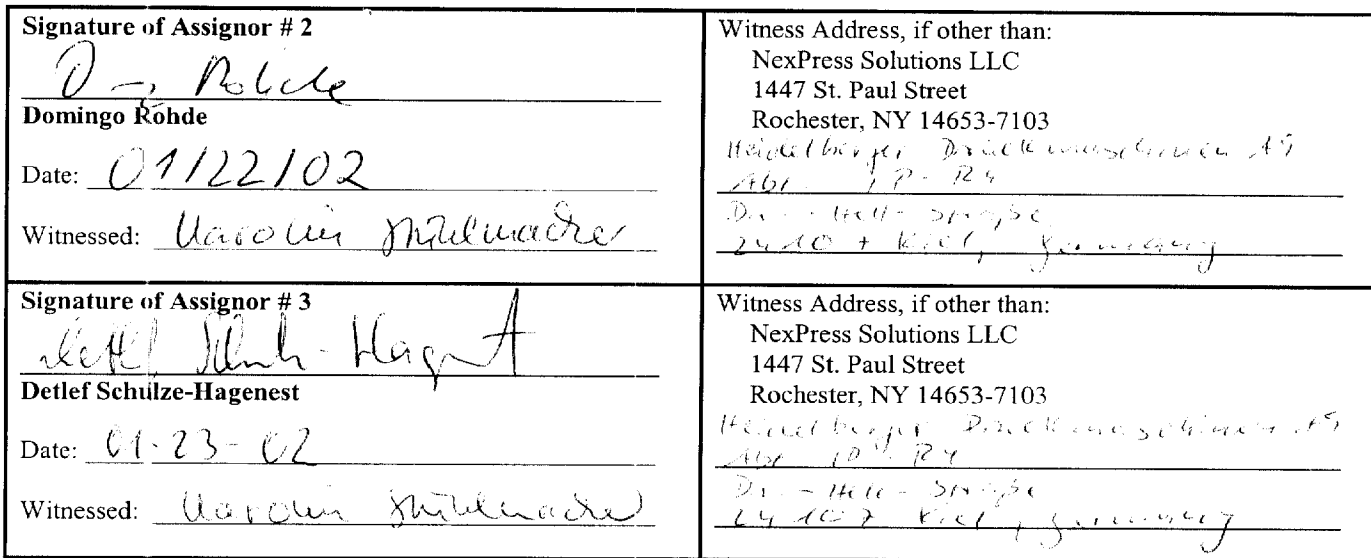 Signature of Assignor # 2
Domingo Rohde
Date: 01/22/02
Witnessed:
Witness Address, if other than:
NexPress Solutions LLC
1447 St. Paul Street
Rochester, NY 14653-7103
Heidelberger Druckmaschinen AG
Abt.
Dr. - Hell - Straße
Kiel, Germany
Signature of Assignor # 3
Detlef Schulze-Hagenest
Date: 01-23-02
Witnessed:
Witness Address, if other than:
NexPress Solutions LLC
1447 St. Paul Street
Rochester, NY 14653-7103
Heidelberger Druckmaschinen AG
Abt.
Dr. - Hell - Straße
24107 Kiel, Germany